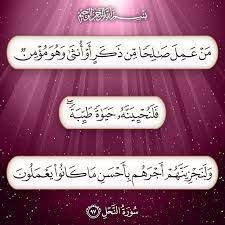 بِسْمِ اللَّهِ الرَّحْمَٰنِ الرَّحِيمِ
مَنْ عَمِلَ صَالِحًا مِّن ذَكَرٍ أَوْ أُنثَىٰ وَهُوَ مُؤْمِنٌ
فَلَنُحْيِيَنَّهُۥ حَيَوٰةً طَيِّبَةً ۖ
وَلَنَجْزِيَنَّهُمْ أَجْرَهُم بِأَحْسَنِ مَا كَانُوا۟ يَعْمَلُونَ
سُورَةُ النَّحْلِ ٩٧